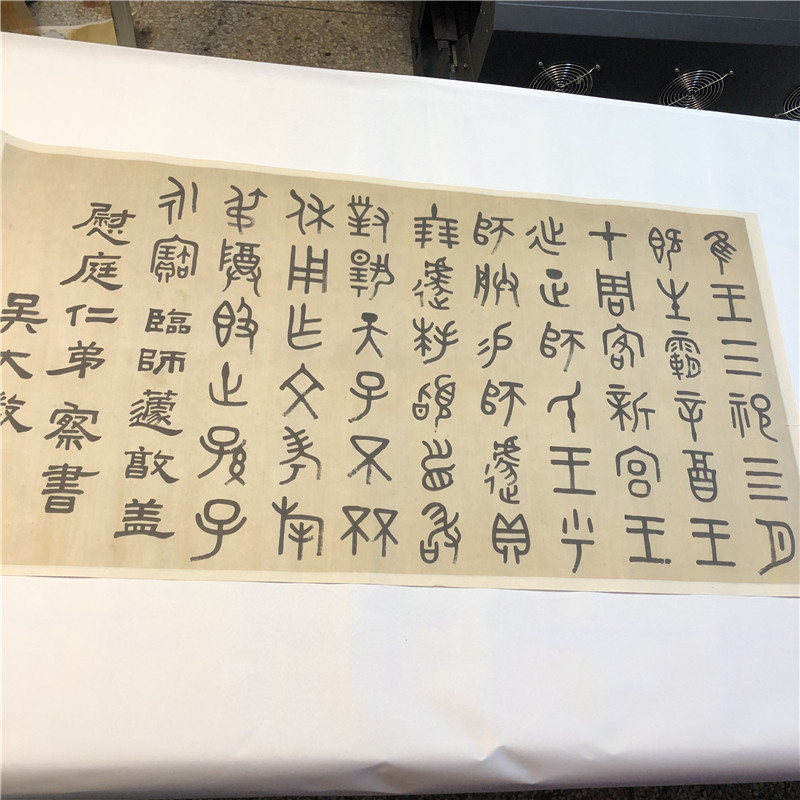 隹王三祀三月
既生霸辛酉王
才周客新宮王
正師氏王乎
師朕易師遽貝
十朋遽拜𩒨首敢
對揚天子不𠀠
休用乍文考旄
弔尊𣪘世孫子
永寶 臨師蘧敦盖
慰庭仁弟 察書
吳大澂